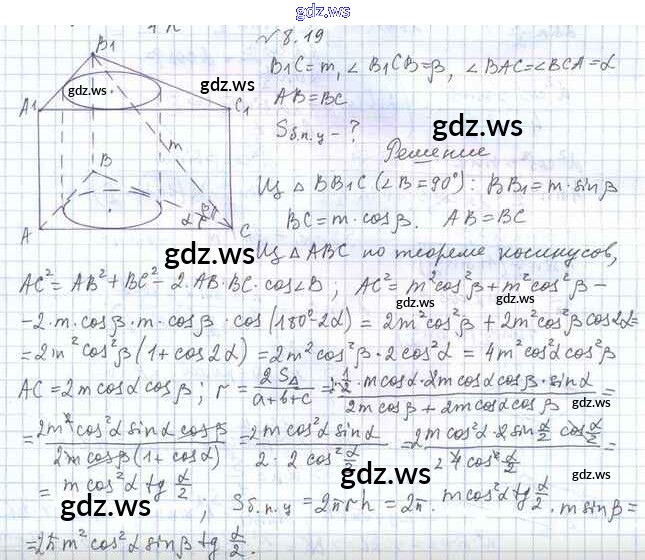 gdz.ws
№8.19
B₁C=m, ∠B₁CB=β, ∠BAC=∠BCA=α
AB=BC
Sб.п.ц - ?
gdz.ws
Решение
B₁
A₁
C₁
gdz.ws
gdz.ws
m
B
A
C
α
β
gdz.ws
Из △BB₁C (∠B=90°): BB₁=m·sinβ
BC=m·cosβ. AB=BC
Из △ABC по теореме косинусов,
AC²=AB²+BC²-2·AB·BC·cos∠B; AC²=m²cos²β+m²cos²β-
gdz.ws
gdz.ws
-2·m·cosβ·m·cosβ·cos(180°-2α)=2m²cos²β+2m²cos²βcos2α=
=2m²cos²β(1+cos2α)=2m²cos²β·2cos²α=4m²cos²αcos²β
gdz.ws
AC=2mcosαcosβ; r=2S△/(a+b+c)=2·1/2·mcosα·2mcosαcosβ·sinα/(2mcosβ+2mcosαcosβ)=
gdz.ws
=2m²cos²αsinαcosβ/(2mcosβ(1+cosα))=2mcos²αsinα/(2·2cos²α/2)=2mcos²α·2sinα/2cosα/2/(4cos²α/2)=
=mcos²αtgα/2; Sб.п.ц=2πrh=2π·mcos²αtgα/2·msinβ=
gdz.ws
gdz.ws
=2πm²cos²αsinβtgα/2.
gdz.ws